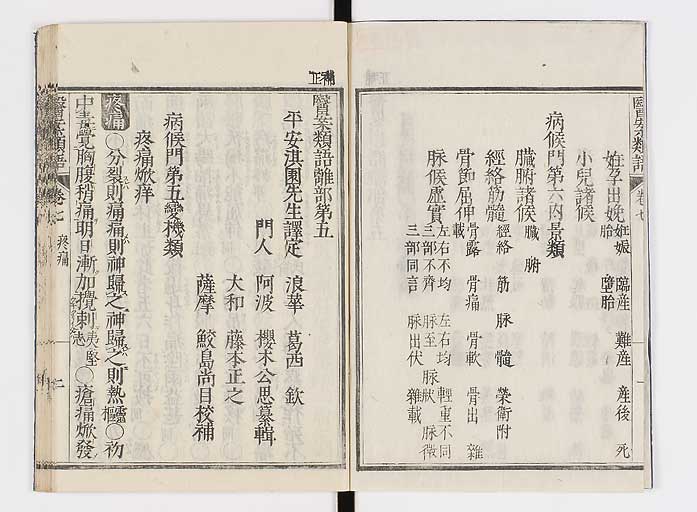 醫案類語
卷七
姙孕出娩 姙娠 臨産 難産 産後 死胎 墮胎
小兒諸候
病候門第六内景類
臟腑諸候 臟 腑
經絡筋髓 經絡 筋 脉 髓 榮衛附
骨節屈伸 骨露 骨痛 骨軟 骨出 雜載
脉候虚實 左右不均 左右均 輕重不同 三部不齊 脉至 脉狀 脉微 三部同言 脉出伏 雜載
補正
醫案類語雜部第五
平安淇園先生譯定
浪華 葛西 欽
門人 阿波 櫻木公思纂輯
大和 藤本正之
薩摩 鮫島尚目校補
病候門第五變機類
疼痛焮痒
疼痛 ○分裂則痛痛則神歸之神歸之則熱 ○初
中 覺胸腹稍痛明日漸加攪刺 夷堅志 ○瘡痛焮發
醫案類語
卷七
疼痛
二